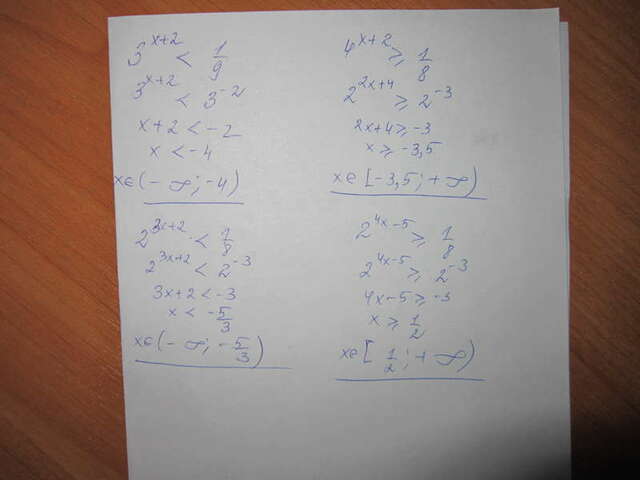 3^{x+2} < \frac{1}{9}
3^{x+2} < 3^{-2}
x+2 < -2
x < -4
x∈(-∞; -4)
4^{x+2} ≥ \frac{1}{8}
2^{2x+4} ≥ 2^{-3}
2x+4 ≥ -3
x ≥ -3,5
x∈[-3,5; +∞)
2^{3x+2} < \frac{1}{8}
2^{3x+2} < 2^{-3}
3x+2 < -3
x < -\frac{5}{3}
x∈(-∞; -\frac{5}{3})
2^{4x-5} ≥ \frac{1}{8}
2^{4x-5} ≥ 2^{-3}
4x-5 ≥ -3
x ≥ \frac{1}{2}
x∈[\frac{1}{2}; +∞)